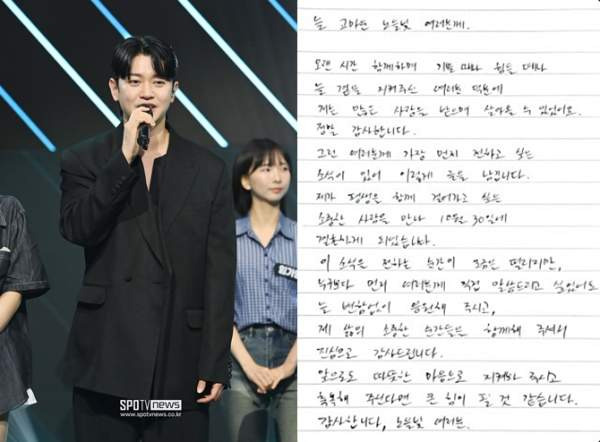 늘 고마운 노을빛 여러분께.
오랜 시간 함께하며 기쁠 때나 힘들 때나
늘 곁을 지켜주신 여러분 덕분에
저는 많은 사랑을 받으며 살아올 수 있었어요.
정말 감사합니다.
그런 여러분께 가장 먼저 전하고 싶은
소식이 있어 이렇게 글을 남깁니다.
제가 평생을 함께 걸어가고 싶은
소중한 사람을 만나 10월 30일에
결혼하게 되었습니다.
이 소식을 전하는 순간이 조금은 떨리지만,
누구보다 먼저 여러분께 직접 말씀드리고 싶었어요
늘 변함없이 응원해 주시고,
제 삶의 소중한 순간들을 함께해 주셔서
진심으로 감사드립니다.
앞으로도 따뜻한 마음으로 지켜봐 주시고
축복해 주신다면 큰 힘이 될 것 같습니다.
감사합니다, 노을빛 여러분.
SPOTVnews
www.spotvnews.co.kr